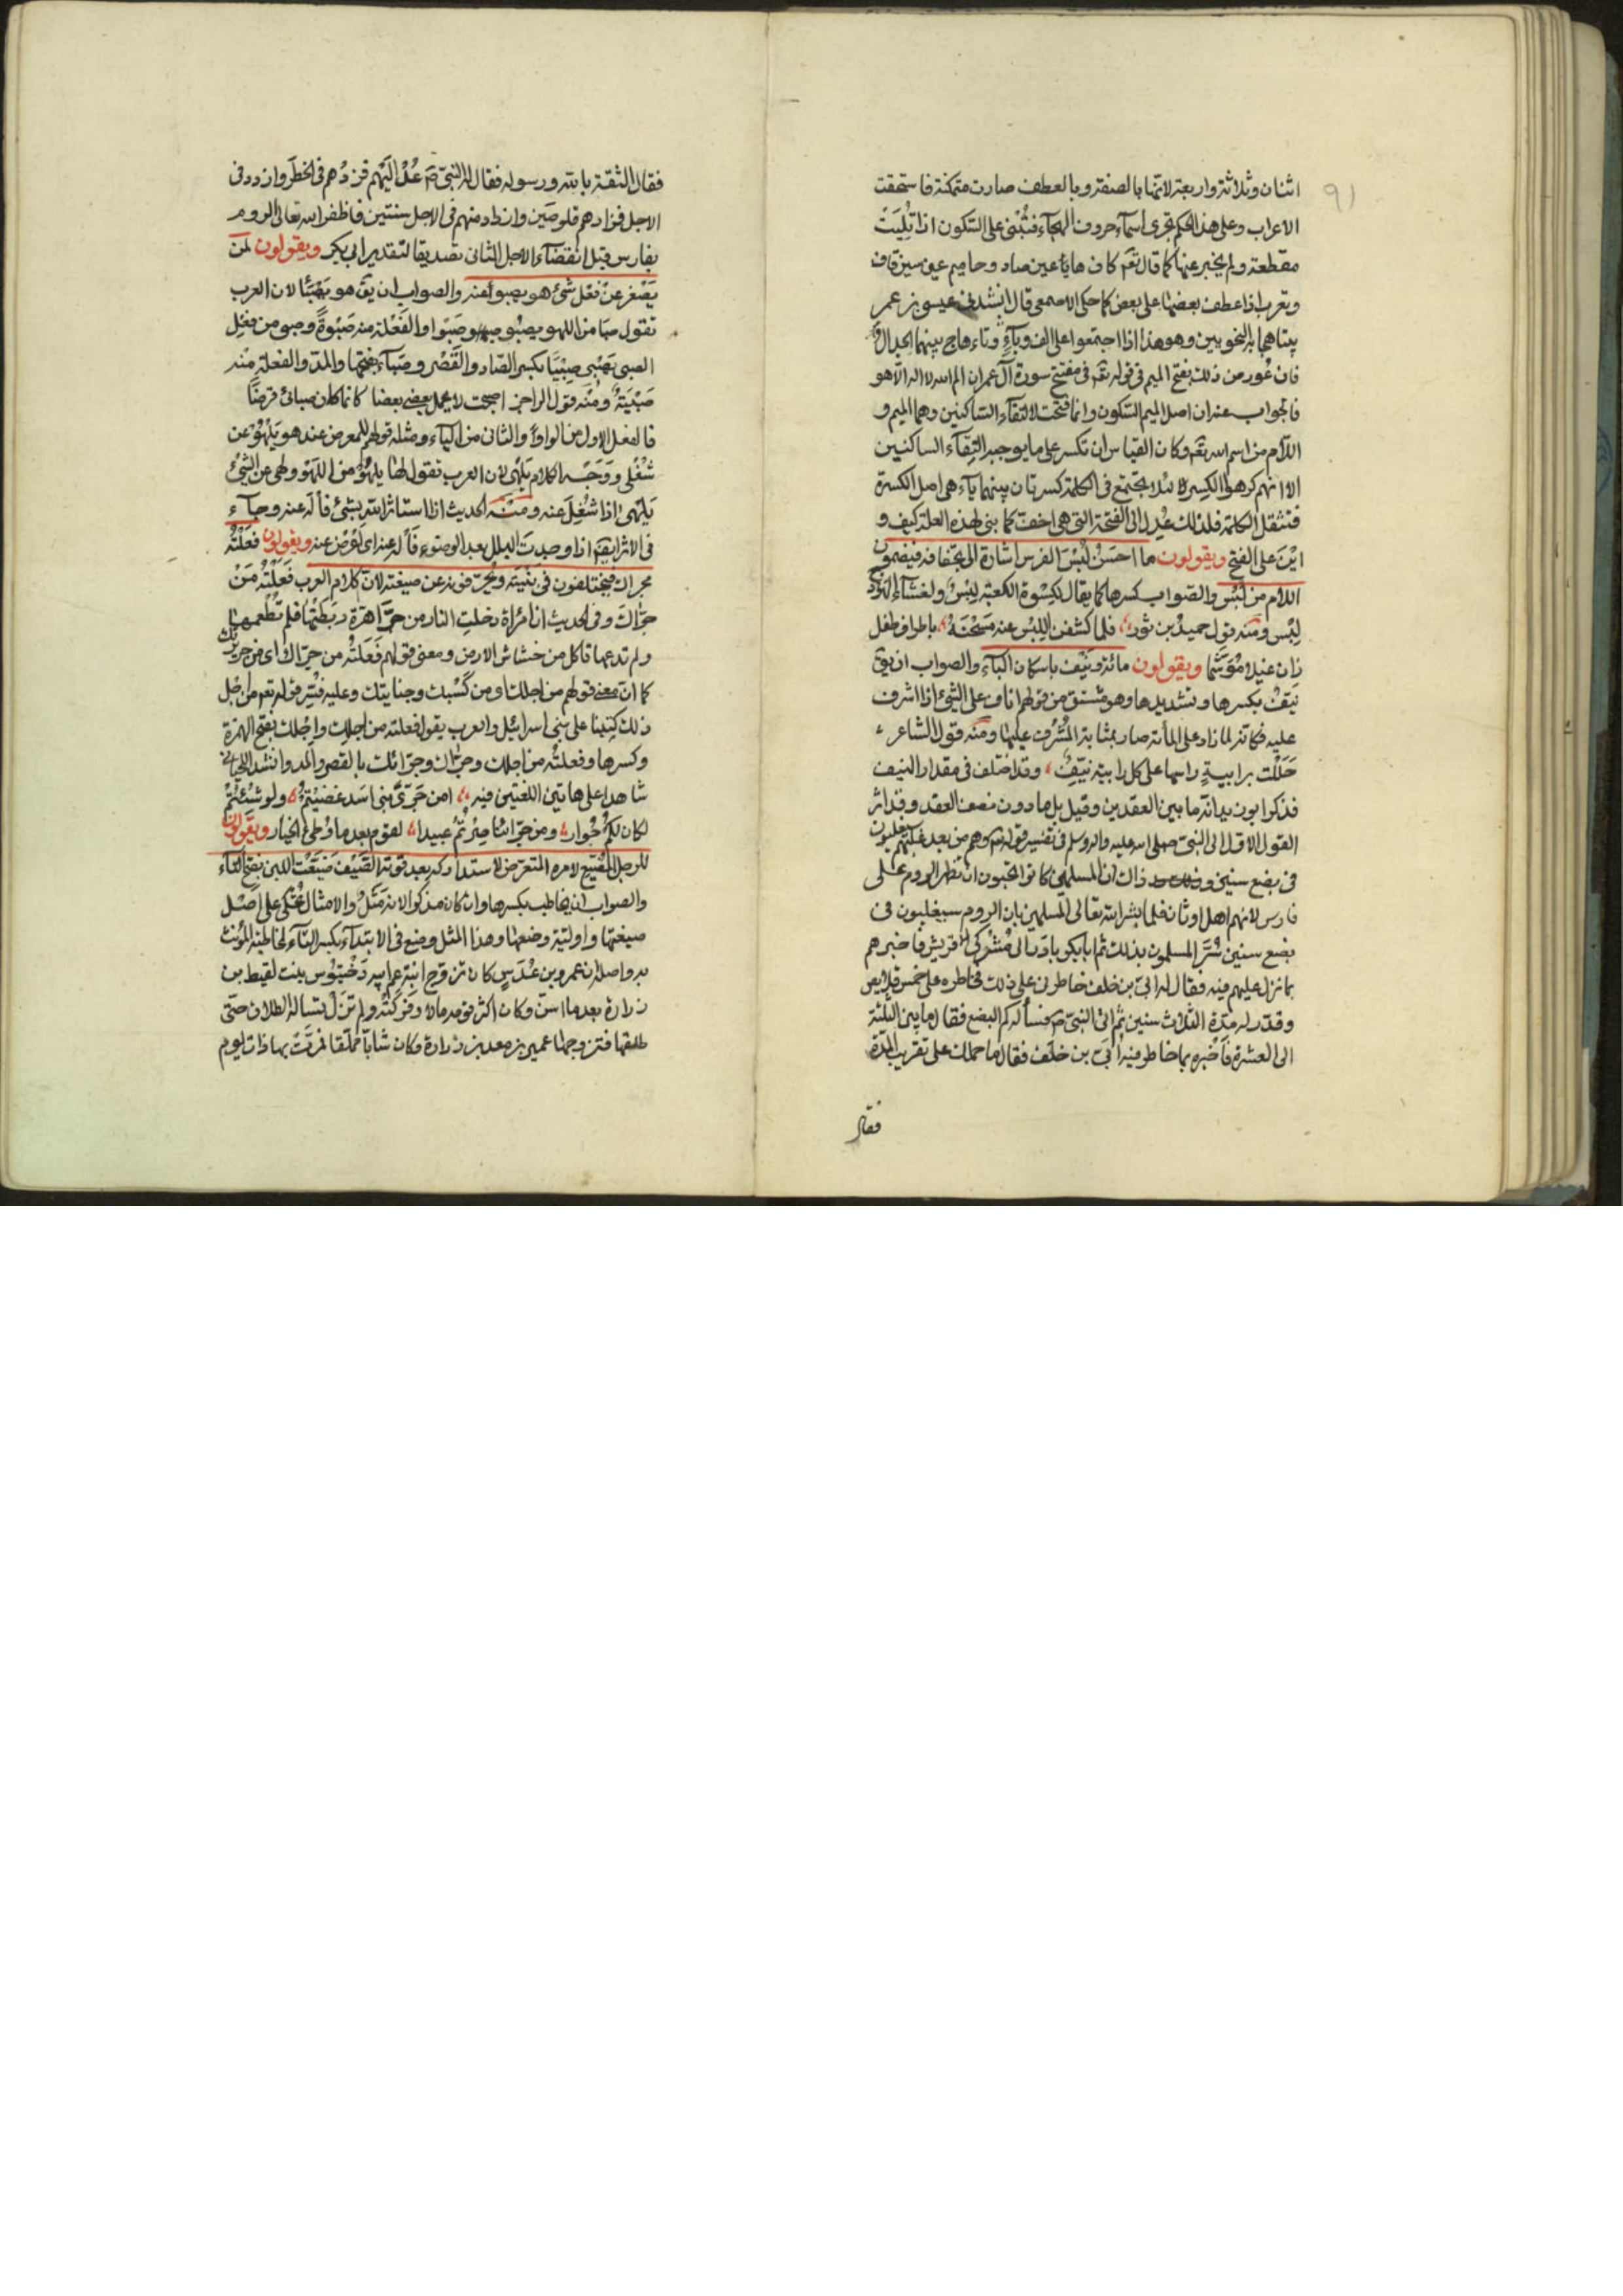 ٩١
اثنان وثلاثة واربعة لانها بالصفة وبالعطف صارت متمكنة فاستحقت
الاعراب وعلى هذا الحكم تجرى اسمآء حروف الهجآء فتُبْنى على السّكون اذا تُلِيَتْ
مقطعة ولم يخبر عنها كما قال تعٓ كاف ها يا عين صاد وحا ميم عين سين قاف
وتعرب اذا عطف بعضها على بعض كما حكى الاصمعى قال انشدنى عيسى بن عمر
بيتا هجا به النحويين وهو هذا اذا اجتمعوا على الف وبآءٍ وتاء هاج بينهما الجدال
فان عُورض من ذلك بفتح الميم فى قوله تعٓ فى مفتتح سورة آل عمران الم الله لا اله الّا هو
فالجواب عنه ان اصل الميم السّكون وانما فتحت لالتقآء السّاكنين وهما الميم و
اللّام من اسم الله تعٓ وكان القياس ان تكسر على ما يوجبه التقآء الساكنين
الا انهم كرهوا الكسر لئلا يجتمع فى الكلمة كسرتان بينهما يآء هى اصل الكسرة
فتثقل الكلمة فلذلك عُدِل الى الفتحة التى هى اخفّ كما بنى لهذه العلة كيف و
اَيْنَ على الفتح ويقولون ما احسَنَ لُبْسَ الفرس اشارة الى تجفافه فيضمون
اللام من لُبْس والصّواب كسرها كما يقال لكِسْوة الكعبة لِبْسٌ ولغشآء الهَوْدَج
لِبْس ومنه قول حميد بن ثور فلما كشفن اللِبْس عنه مسَحْنَهُ باطراف طفل
زان غيلا مُوَشَّما ويقولون مائة ونَيْف باسكان اليآء والصواب ان يقٓ
نَيّفٌ بكسرها وتشديدها وهو مشتق من قولهم اناف على الشئ اذا اشرف
عليه فكانّه لما زاد على المأئة صار بمثابة المُشْرِف عليها ومنه قول الشاعر
حَلَلْت برابيةٍ راسها على كل رابية نَيّفُ وقد اختلف فى مقدار النيف
فذكر ابو زيد انه ما بين العقدين وقيل بل ما دون نصف العقد وقد اثر
القول الاوّل الى النبىّ صلى الله عليه واله وسلم فى تفسير قوله تعٓ وهم من بعد غلبهم سيغلبون
فى بضع سنين وذلك ان المسلمين كانوا يحبّون ان تظهر الروم على
فارس لانهم اهل اوثان فلما بشر الله تعالى المسلمين بان الروم سيغلبون فى
بضع سنين سُرَّ المسلمون بذلك ثم ابا بكر بادر الى مُشْركى قريش فاخبرهم
بما نزل عليهم فيه فقال له ابىّ بن خلف خاطرنى على ذلك فخاطره على خمس قلايص
وقدّر له مدّة الثّلاث سنين ثم اتى النبىّ صٓ فسأله كم البضع فقال ما بين الثّلثة
الى العشرة فاَخْبره بما خاطر به اُبَىّ بن خلف فقال ما حملك على تقريب المدّة
فقال
فقال الثقة بالله ورسوله فقال له النبىّ صٓ عُدْ اليْهم فزدْهم فى الخطر وازدد فى
الاجل فزادهم قلوصَين وازداد منهم فى الاجل سنتين فاظفر الله تعالى الروم
بفارس قبل انقضآء الاجل الثانى تصديقا لتقدير ابى بكر ويقولون لمن
يَصْغر عنْ فعْل شئ هو يصبو عنه والصواب ان يقٓ هو يَصْبَأ لان العرب
تقول صبا من اللهو يصبُو صبوا وصُبُوّا والفَعْلة منه صَبْوةٌ وصبى من فِعْل
الصبى يَصْبى صِبْيًا بكسر الصّاد والقَصْر وصبَآء بفتحها والمدّ والفعلة منه
صَبْيَةٌ ومنه قول الراجز اصبحت لا يحمل بعضى بعضا كانما كان صبائى قرضًا
فالفعل الاول من الواو والثانى من اليآء ومثله قولهم للمعرض عنه هو يَلْهُو عن
شُغْلى ووَجْه الكلام يَلْهَى لان العرب تقول لها يلهُو من اللهو ولهى عن الشئ
يَلْهى اذا شُغِل عنه ومنه الحديث اذا استاثر الله بشئ فاَلْه عنه وجآء
فى الاثر ايضٓ اذا وجدت البلل بعد الوضوء فاَلْه عنه اى اَعْرِض عنه ويقولون فعَلْتُه
مجراك فيختلفون فى بنيته ويحرّفونه عن صيغته لان كلام العرب فَعَلْتُه مِنْ
جرّاك وفى الحديث ان امْرَاة دخلت النار من جرّا هرّة ربطتْها فلم تُطْعِمها
ولم تدعها تاكل من خشاش الارض ومعنى قولهم فَعَلتُه من جرّاك اى من جريرتك
كما انّ معنى قولهم من اجلك من كَسْبك وجنايتك وعليه فُسِّر قوله تعٓ من اجْل
ذلك كتبنا على بنى اسرائيل والعرب يقول فعلته من اجلك واِجْلك بفتح الهمزة
وكسرها وفعلتُه من اجلك وجرّاك وجرّائك بالقصر والمد وانشد اللحيانى
شاهدا على هاتين اللغتين فيه امن جَرّى بنى اسَد غضبْتمُ ولو شئتُمْ
لكان لكُمُ جُوار ومن جرّائنا صِرْتُمْ عبيدا لقوم بعد ما وُطِئَ الخيار ويقولون
للرجل المُضيّع لامره المتعرّض لاستدراكه بعد فوته الصَّيْفَ ضيّعْتَ اللبن بفتح التآء
والصواب ان يخاطب بكسرها وان كان مذكّرا لانه مَثَلٌ والامثال تُحْكى على اَصْل
صيغتها واوليّة وضعها وهذا المثل وضع فى الابتدآء بكسر التآء لمخاطبة المُؤنث
به واصله ان عمرو بن عُدَسٍ كان تزوّج ابنة عم ابيه دَخْتَنُوس بنت لقيط بن
زرارة بعد ما اسنّ وكان اكثر قومه مالا ففركَتْه ولم تَزَلْ تساله الطلاق حتّى
طلقها فتزوجها عمير بن معبد بن زرارة وكان شابّا مملقا فمرَّتْ بها ذات يوم